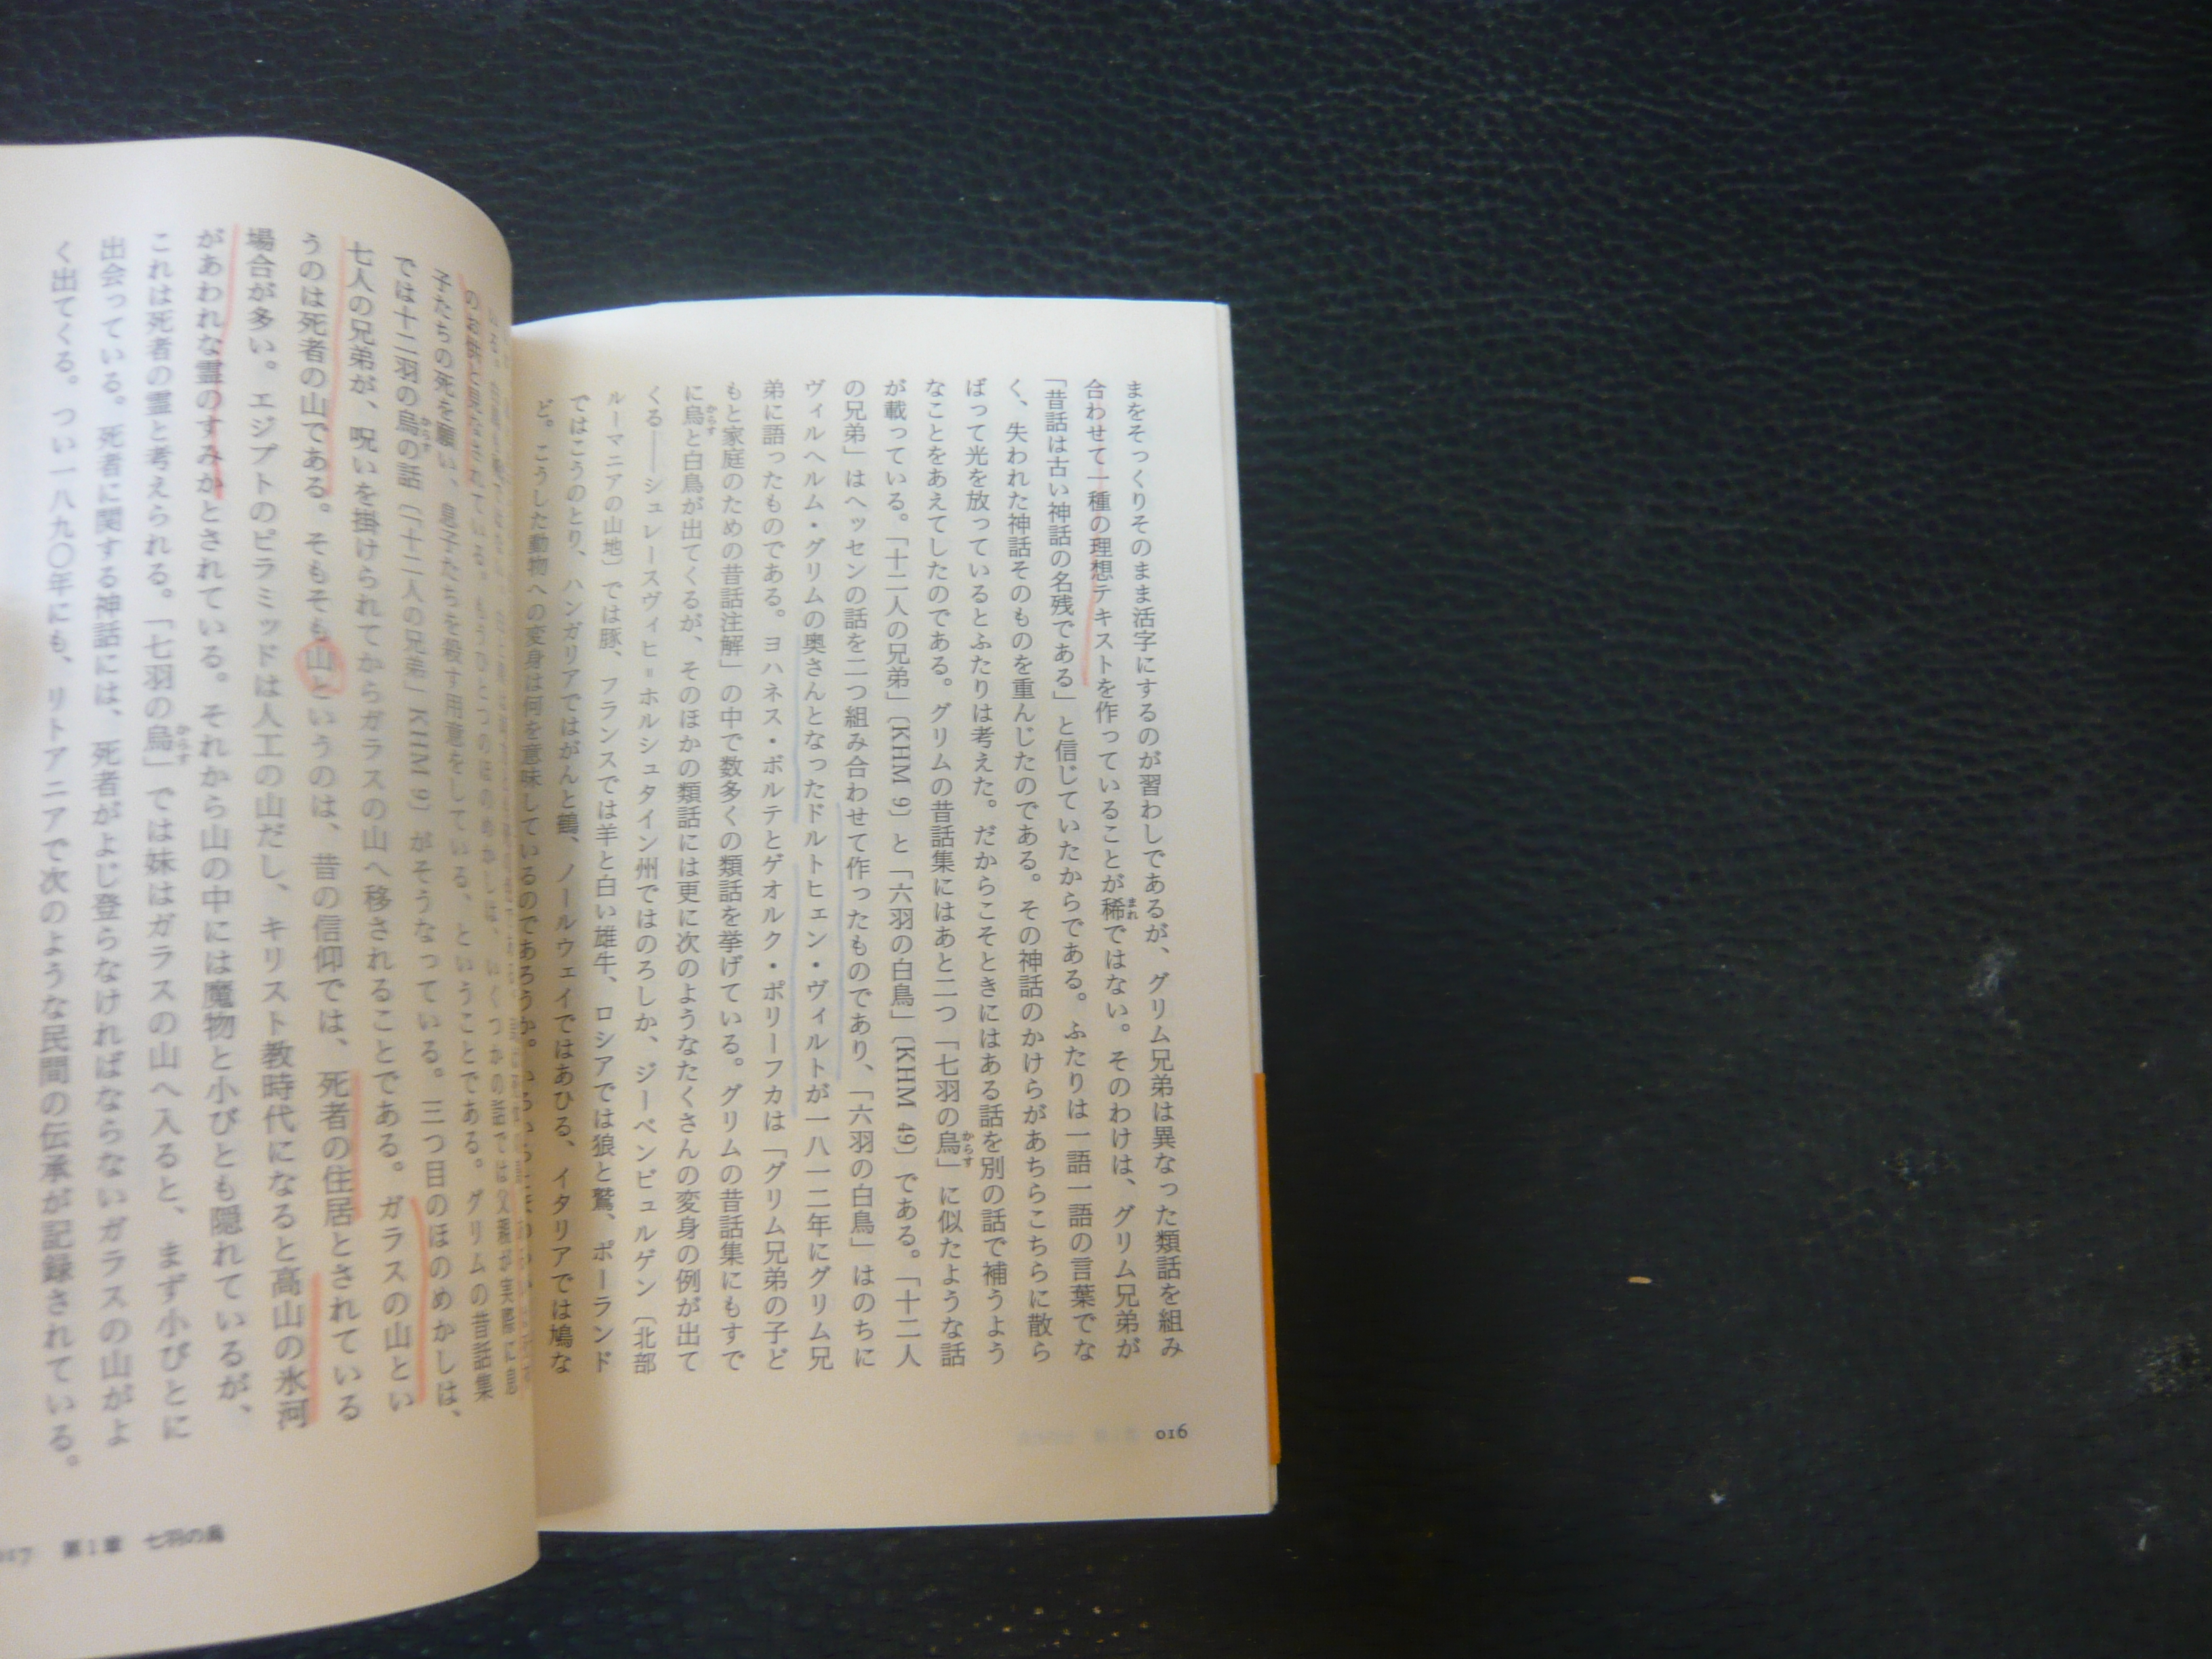 まをそっくりそのまま活字にするのが習わしであるが、グリム兄弟は異なった類話を組み
合わせて一種の理想テキストを作っていることが稀まれではない。そのわけは、グリム兄弟が
「昔話は古い神話の名残である」と信じていたからである。ふたりは一語一語の言葉でな
く、失われた神話そのものを重んじたのである。その神話のかけらがあちらこちらに散ら
ばって光を放っているとふたりは考えた。だからこそときにはある話を別の話で補うよう
なことをあえてしたのである。グリムの昔話集にはあと二つ「七羽の烏からす」に似たような話
が載っている。「十二人の兄弟」〔KHM 9〕と「六羽の白鳥」〔KHM 49〕である。「十二人
の兄弟」はヘッセンの話を二つ組み合わせて作ったものであり、「六羽の白鳥」はのちに
ヴィルヘルム・グリムの奥さんとなったドルトヒェン・ヴィルトが一八一二年にグリム兄
弟に語ったものである。ヨハネス・ボルテとゲオルク・ポリーフカは「グリム兄弟の子ど
もと家庭のための昔話注解」の中で数多くの類話を挙げている。グリムの昔話集にもすで
に烏からすと白鳥が出てくるが、そのほかの類話には更に次のようなたくさんの変身の例が出て
くる——シュレースヴィヒ=ホルシュタイン州ではのろしか、ジーベンビュルゲン〔北部
ルーマニアの山地〕では豚、フランスでは羊と白い雄牛、ロシアでは狼と鵞、ポーランド
ではこうのとり、ハンガリアではがんと鶴、ノールウェイではあひる、イタリアでは鳩な
ど。こうした動物への変身は何を意味しているのであろうか。
016
子たちの死を願い、息子たちを殺す用意をしている、ということである。グリムの昔話集
では十二羽の烏からすの話〔「十二人の兄弟」KHM 9〕がそうなっている。三つ目のほのめかしは、
七人の兄弟が、呪いを掛けられてからガラスの山へ移されることである。ガラスの山とい
うのは死者の山である。そもそも山というのは、昔の信仰では、死者の住居とされている
場合が多い。エジプトのピラミッドは人工の山だし、キリスト教時代になると高山の氷河
があわれな霊のすみかとされている。それから山の中には魔物と小びとも隠れているが、
これは死者の霊と考えられる。「七羽の烏からす」では妹はガラスの山へ入ると、まず小びとに
出会っている。死者に関する神話には、死者がよじ登らなければならないガラスの山がよ
く出てくる。つい一八九〇年にも、リトアニアで次のような民間の伝承が記録されている。
017 第1章 七羽の烏